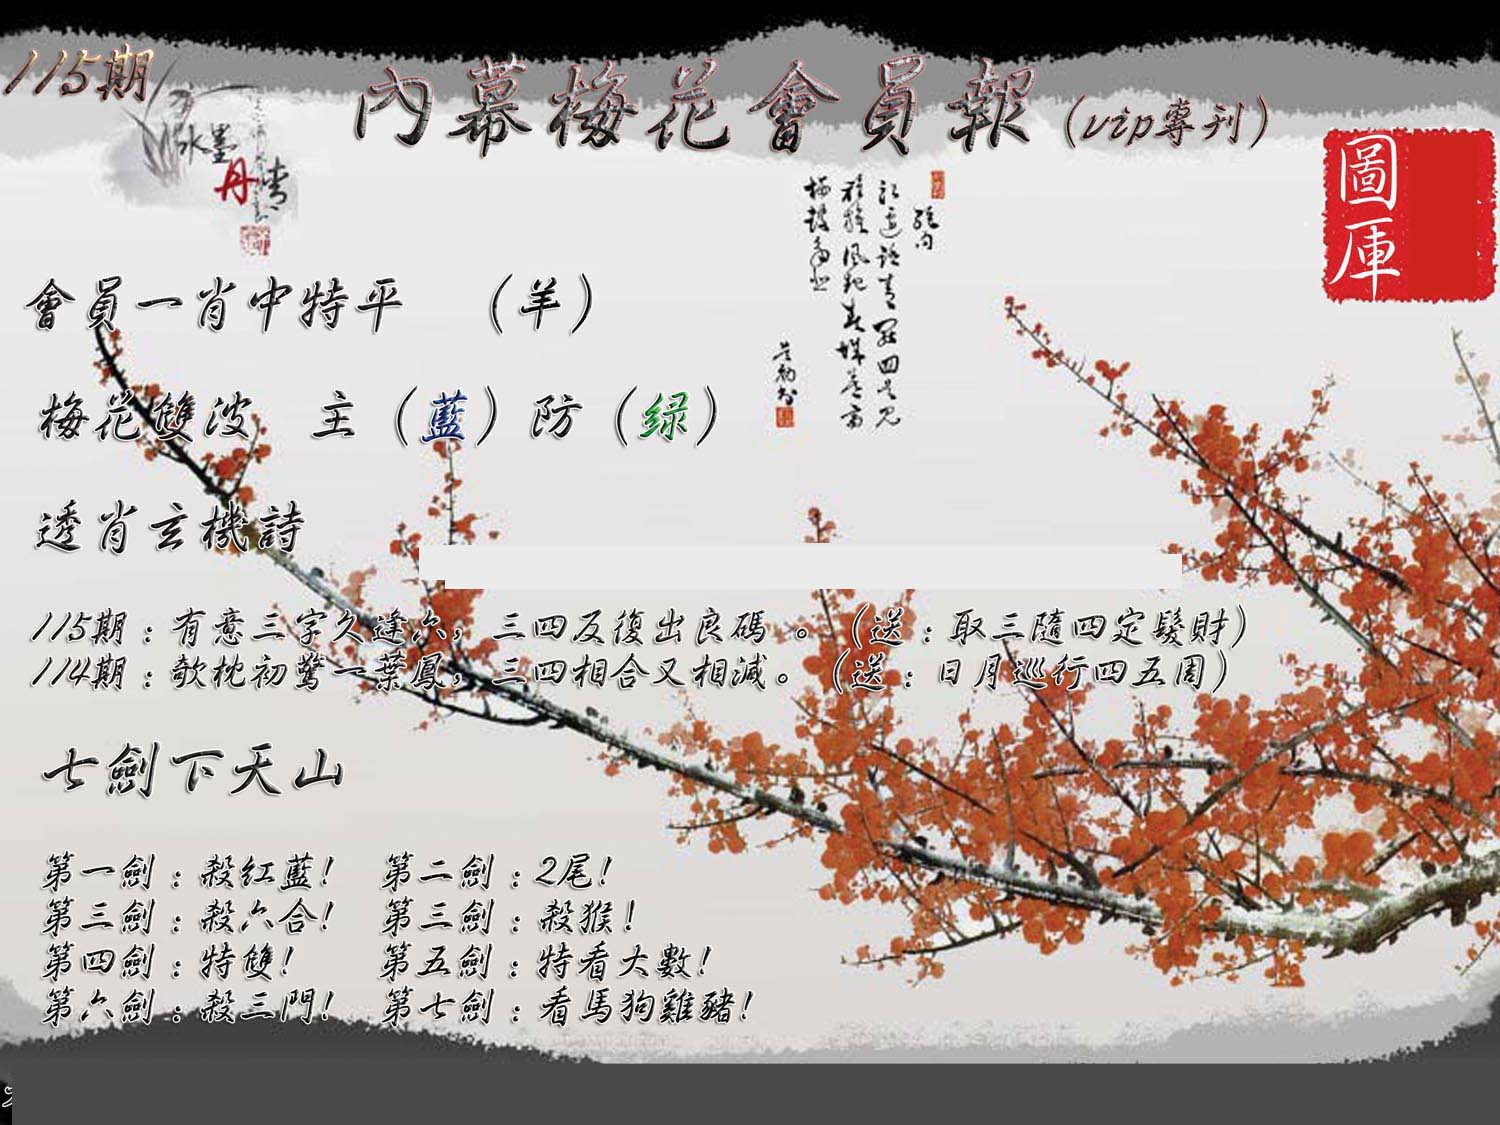 115期
內幕梅花會員報(vip專刊)
水墨
丹青
圖庫
會員一肖中特平 (羊)
梅花雙波 主(藍)防(绿)
透肖玄機詩
115期：有意三字久逢六，三四反復出良碼 。(送：取三隨四定髮財)
114期：欹枕初驚一葉鳳，三四相合又相減。(送：日月巡行四五周)
七劍下天山
第一劍：殺红藍！ 第二劍：2尾！
第三劍：殺六合！ 第三劍：殺猴！
第四劍：特雙！ 第五劍：特看大數！
第六劍：殺三門！ 第七劍：看馬狗雞豬！